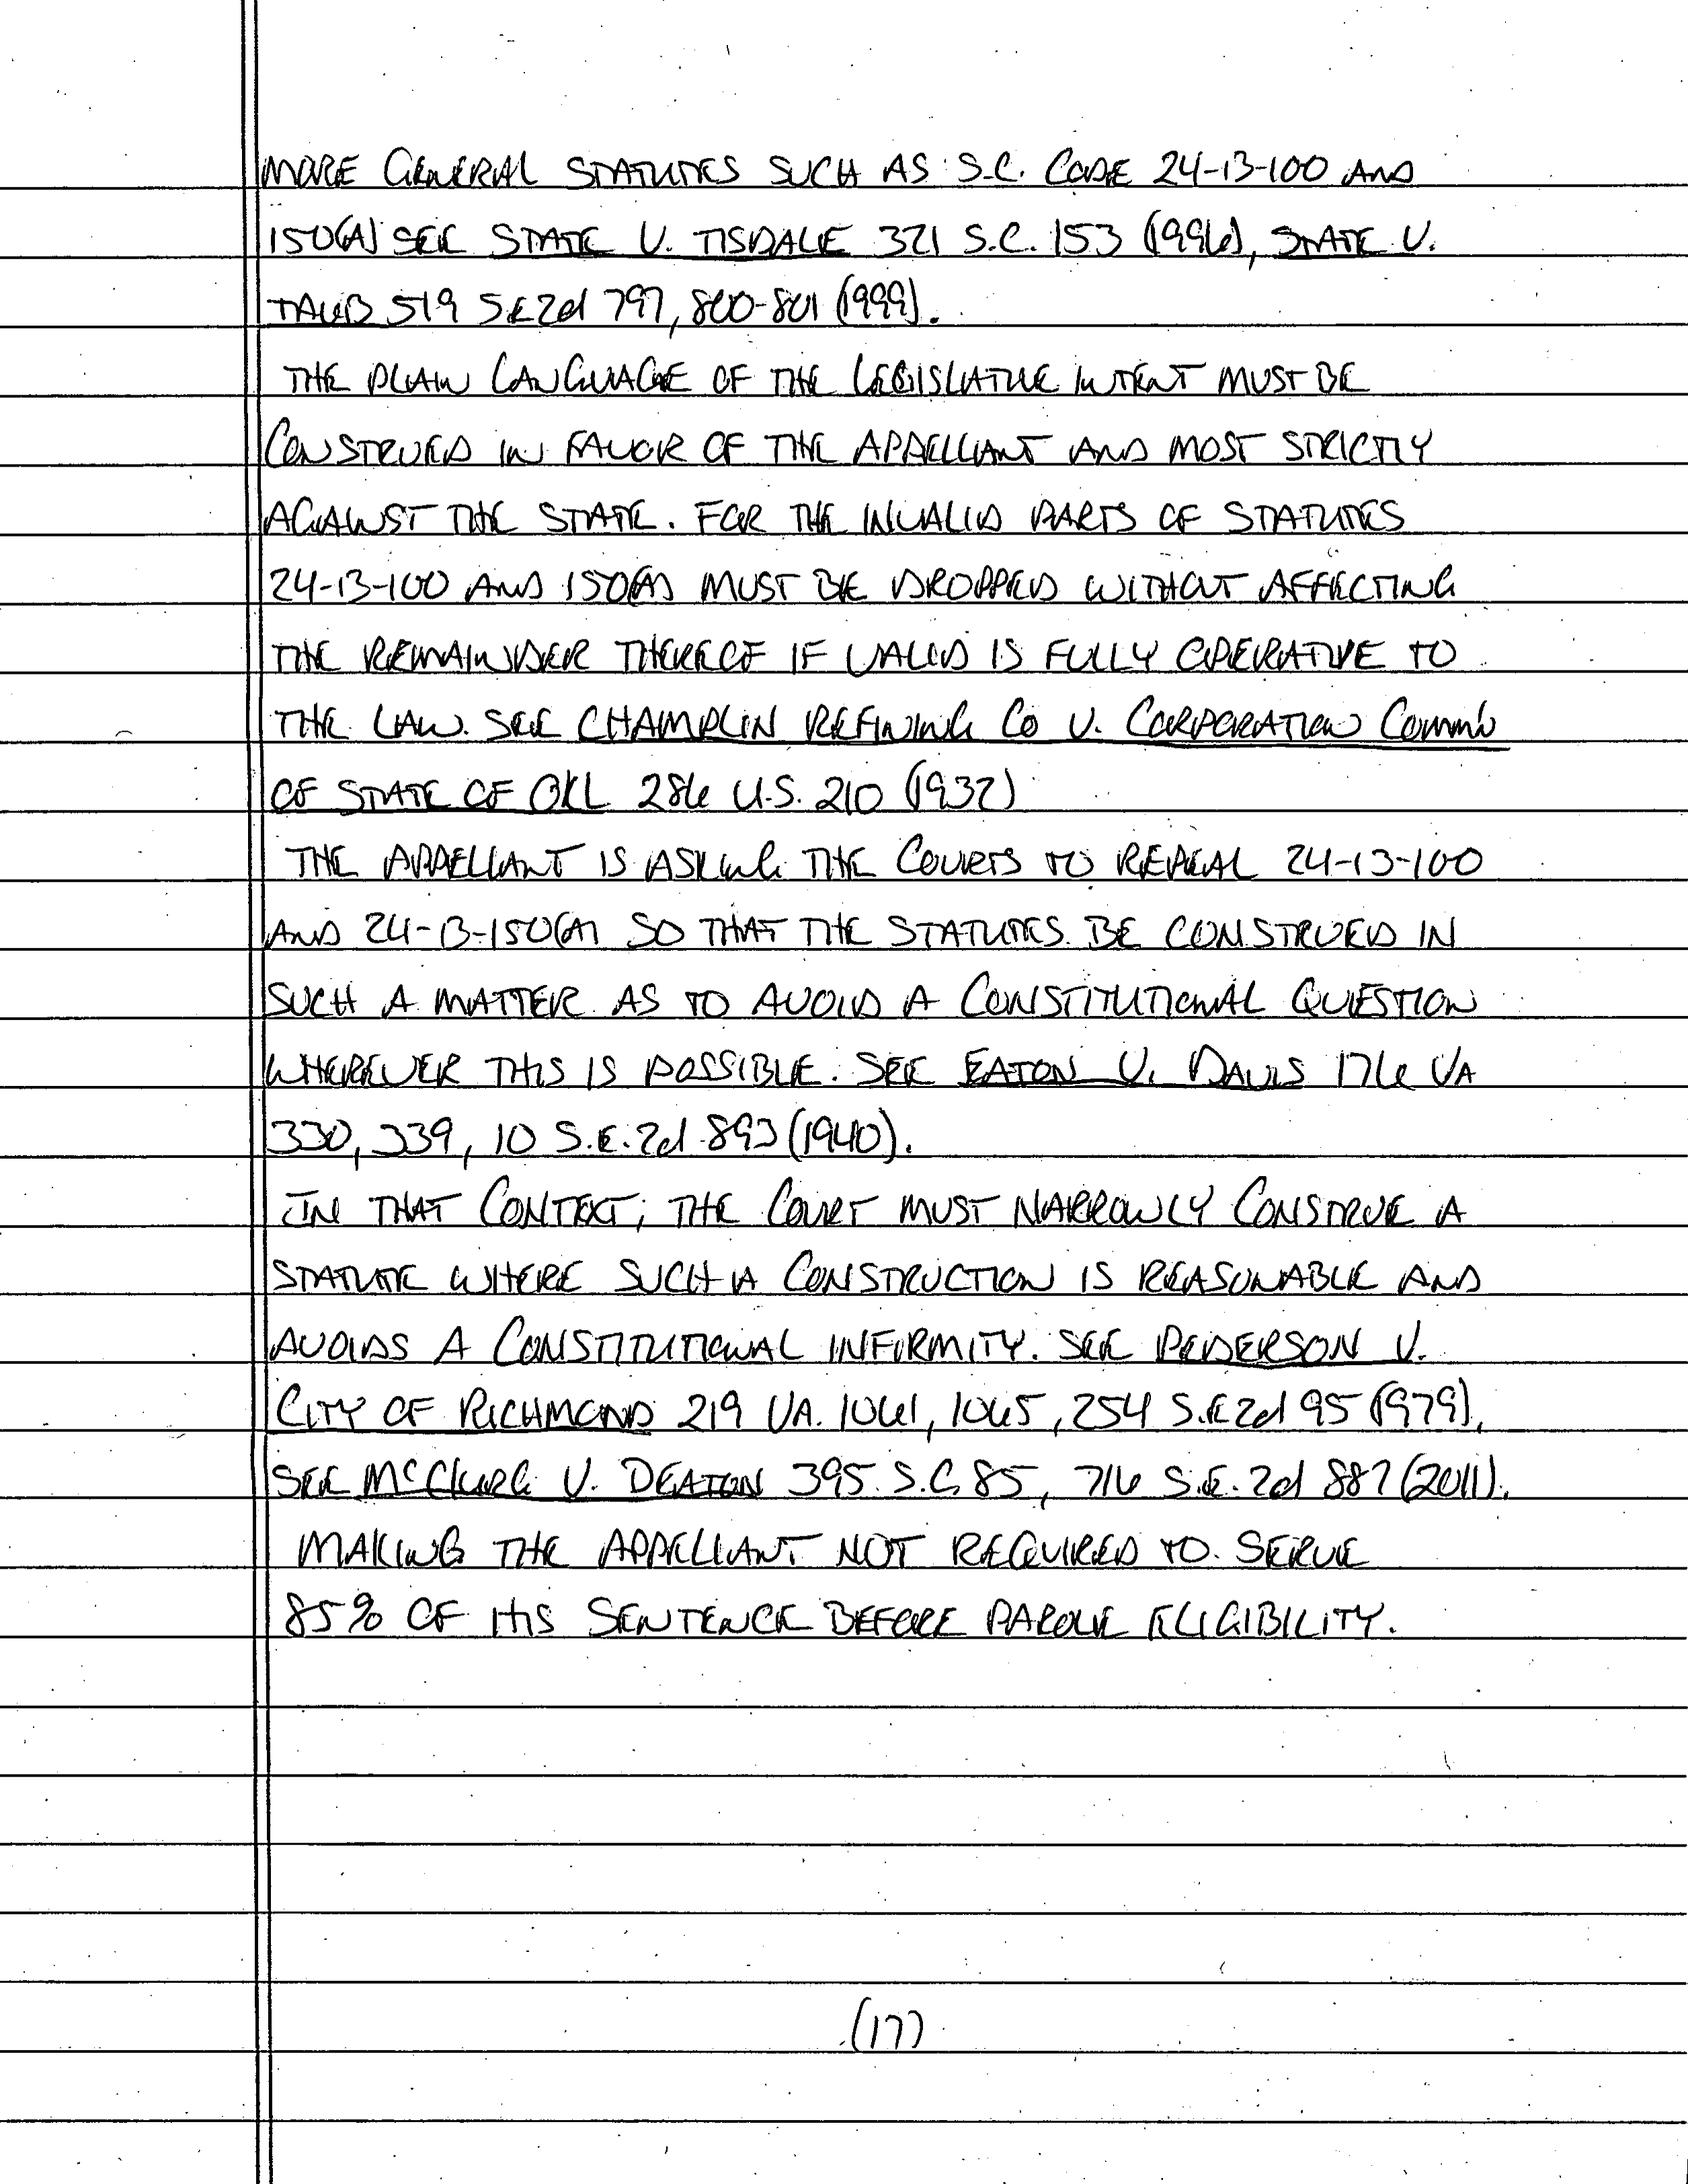 MORE GENERAL STATUTES SUCH AS S.C. CODE 24-13-100 AND
150(A) SEE STATE V. TISDALE 321 S.C. 153 (1996), STATE V.
TAUB 519 S.E.2d 797, 800-801 (1999).
THE PLAIN LANGUAGE OF THE LEGISLATIVE INTENT MUST BE
CONSTRUED IN FAVOR OF THE APPELLANT AND MOST STRICTLY
AGAINST THE STATE. FOR THE INVALID PARTS OF STATUTES
24-13-100 AND 150(A) MUST BE DROPPED WITHOUT AFFECTING
THE REMAINDER THEREOF IF VALID IS FULLY OPERATIVE TO
THE LAW. SEE CHAMPLIN REFINING CO V. CORPORATION COMM'N
OF STATE OF OKL 286 U.S. 210 (1932)
THE APPELLANT IS ASKING THE COURTS TO REPEAL 24-13-100
AND 24-13-150(A) SO THAT THE STATUTES BE CONSTRUED IN
SUCH A MATTER AS TO AVOID A CONSTITUTIONAL QUESTION
WHEREVER THIS IS POSSIBLE. SEE EATON V. DAVIS 176 VA
330, 339, 10 S.E.2d 893 (1940).
IN THAT CONTEXT, THE COURT MUST NARROWLY CONSTRUE A
STATUTE WHERE SUCH A CONSTRUCTION IS REASONABLE AND
AVOIDS A CONSTITUTIONAL INFIRMITY. SEE PEDERSON V.
CITY OF RICHMOND 219 VA. 1061, 1065, 254 S.E.2d 95 (1979),
SEE McCLURG V. DEATON 395 S.C. 85, 716 S.E.2d 887 (2011).
MAKING THE APPELLANT NOT REQUIRED TO SERVE
85% OF HIS SENTENCE BEFORE PAROLE ELIGIBILITY.
(17)